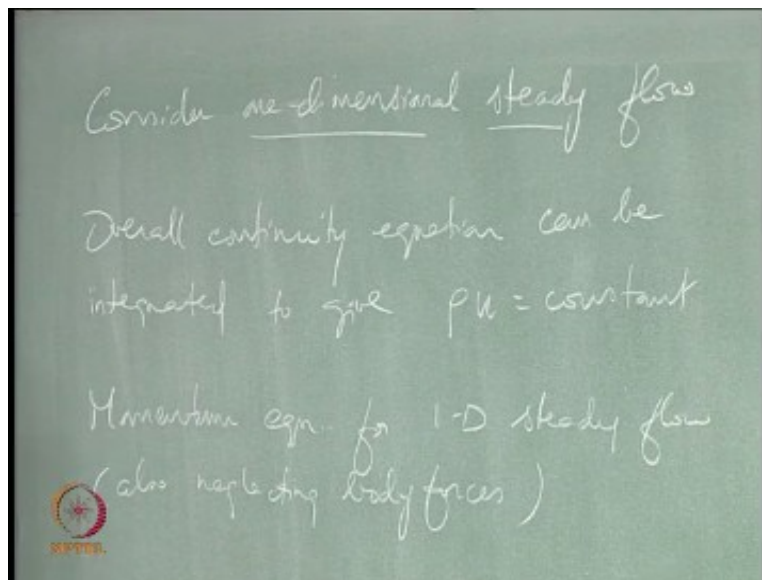 Consider one-dimensional steady flow
Overall continuity equation can be
integrated to give ρu = constant
Momentum eqn. for 1-D steady flow
(also neglecting body forces)
NPTEL